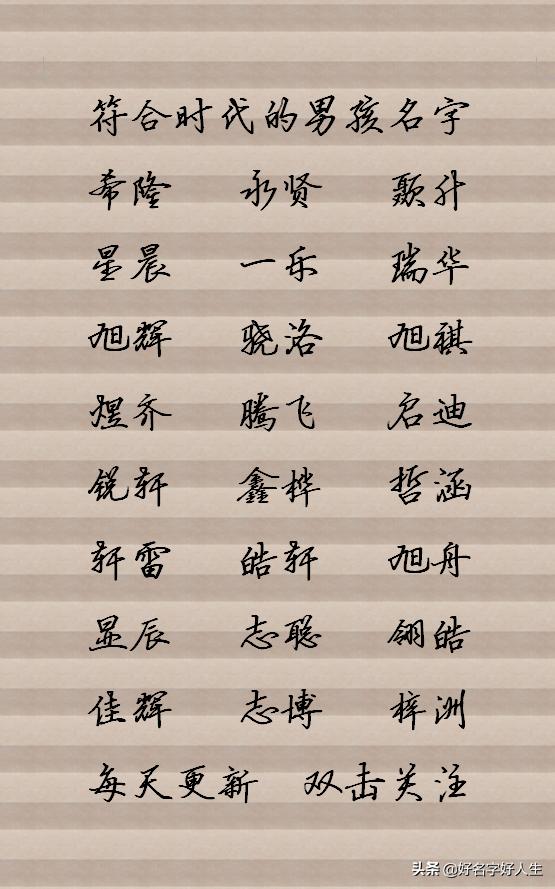 符合时代的男孩名字
希隆 永贤 升
星晨 一乐 瑞华
旭辉 骁洛 旭祺
煜齐 腾飞 启迪
锐轩 鑫桦 哲涵
轩雷 皓轩 旭舟
辰 志聪 皓
佳辉 志博 梓洲
每天更新 双击关注
头条 @好名字好人生